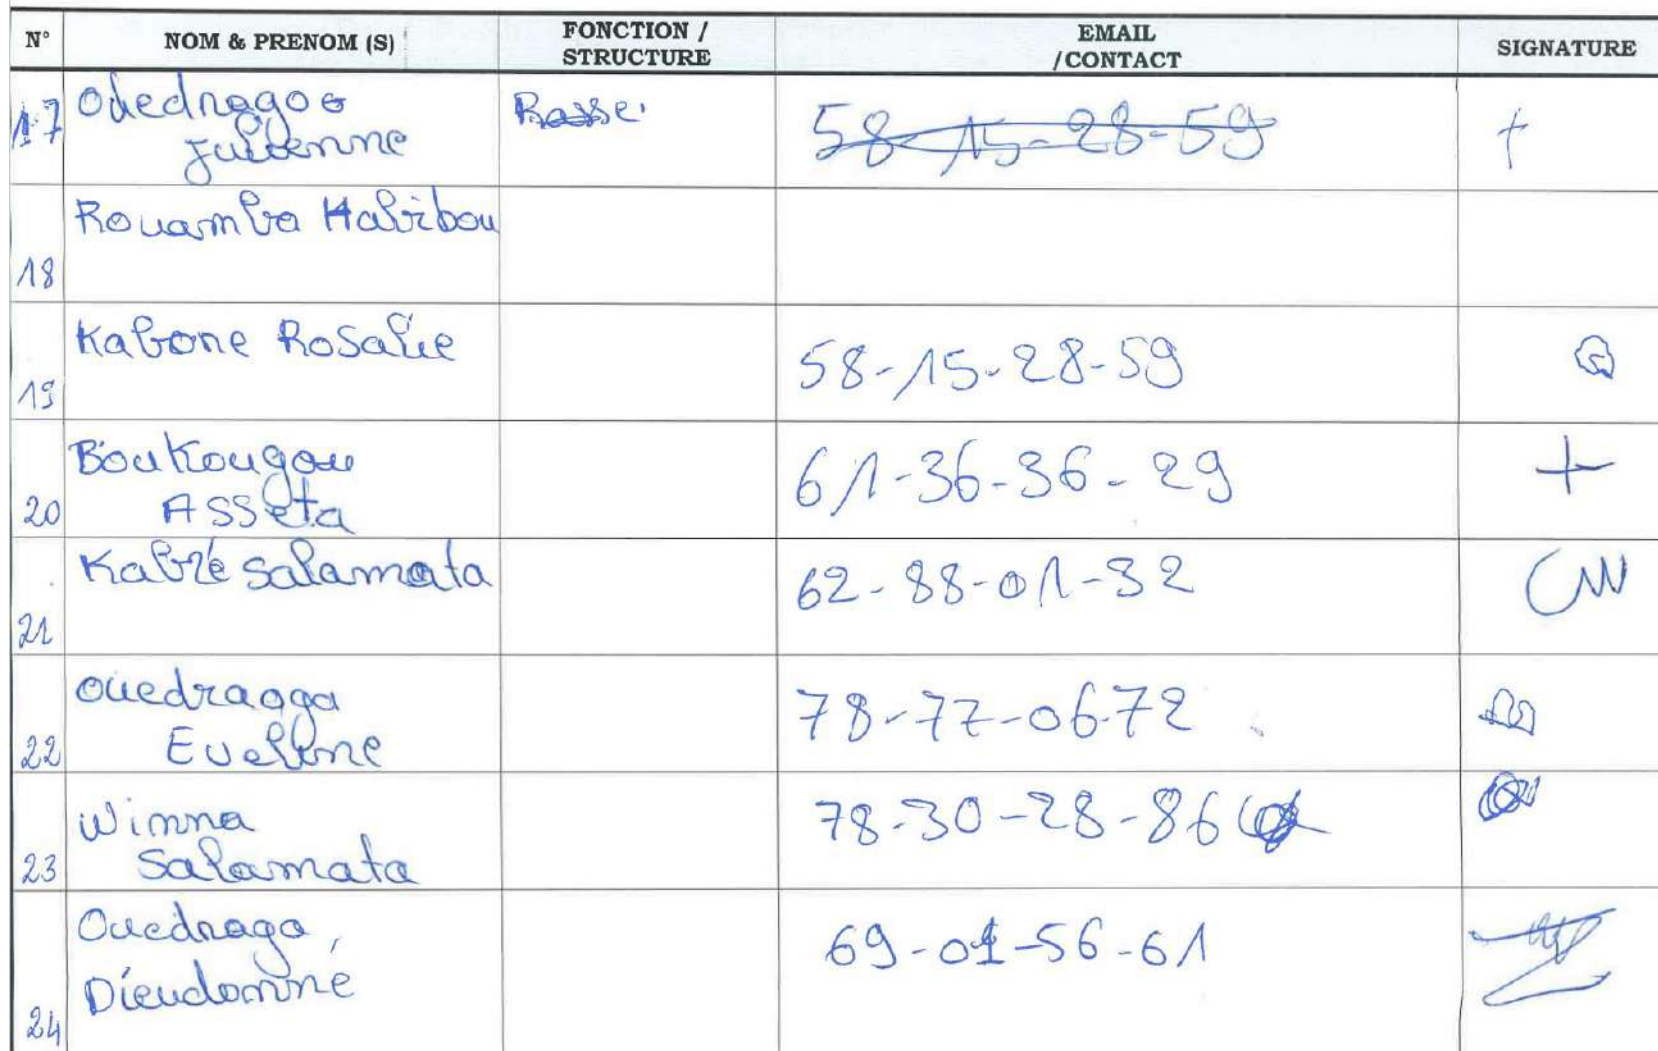 N° NOM & PRENOM (S) FONCTION / STRUCTURE EMAIL /CONTACT SIGNATURE
17 Ouedragoo Julienne 58-15-28-59 +
18 Rouamba Habibou
19 Kabone Rosalie 58-15-28-59
20 Boukougou ASSeta 61-36-36-29 +
21 Kabré Salamata 62-88-01-32
22 Ouedraoga Eveline 78-77-06-72
23 Winna Salamata 78-30-28-86
24 Ouedrago, Dieudonné 69-01-56-61